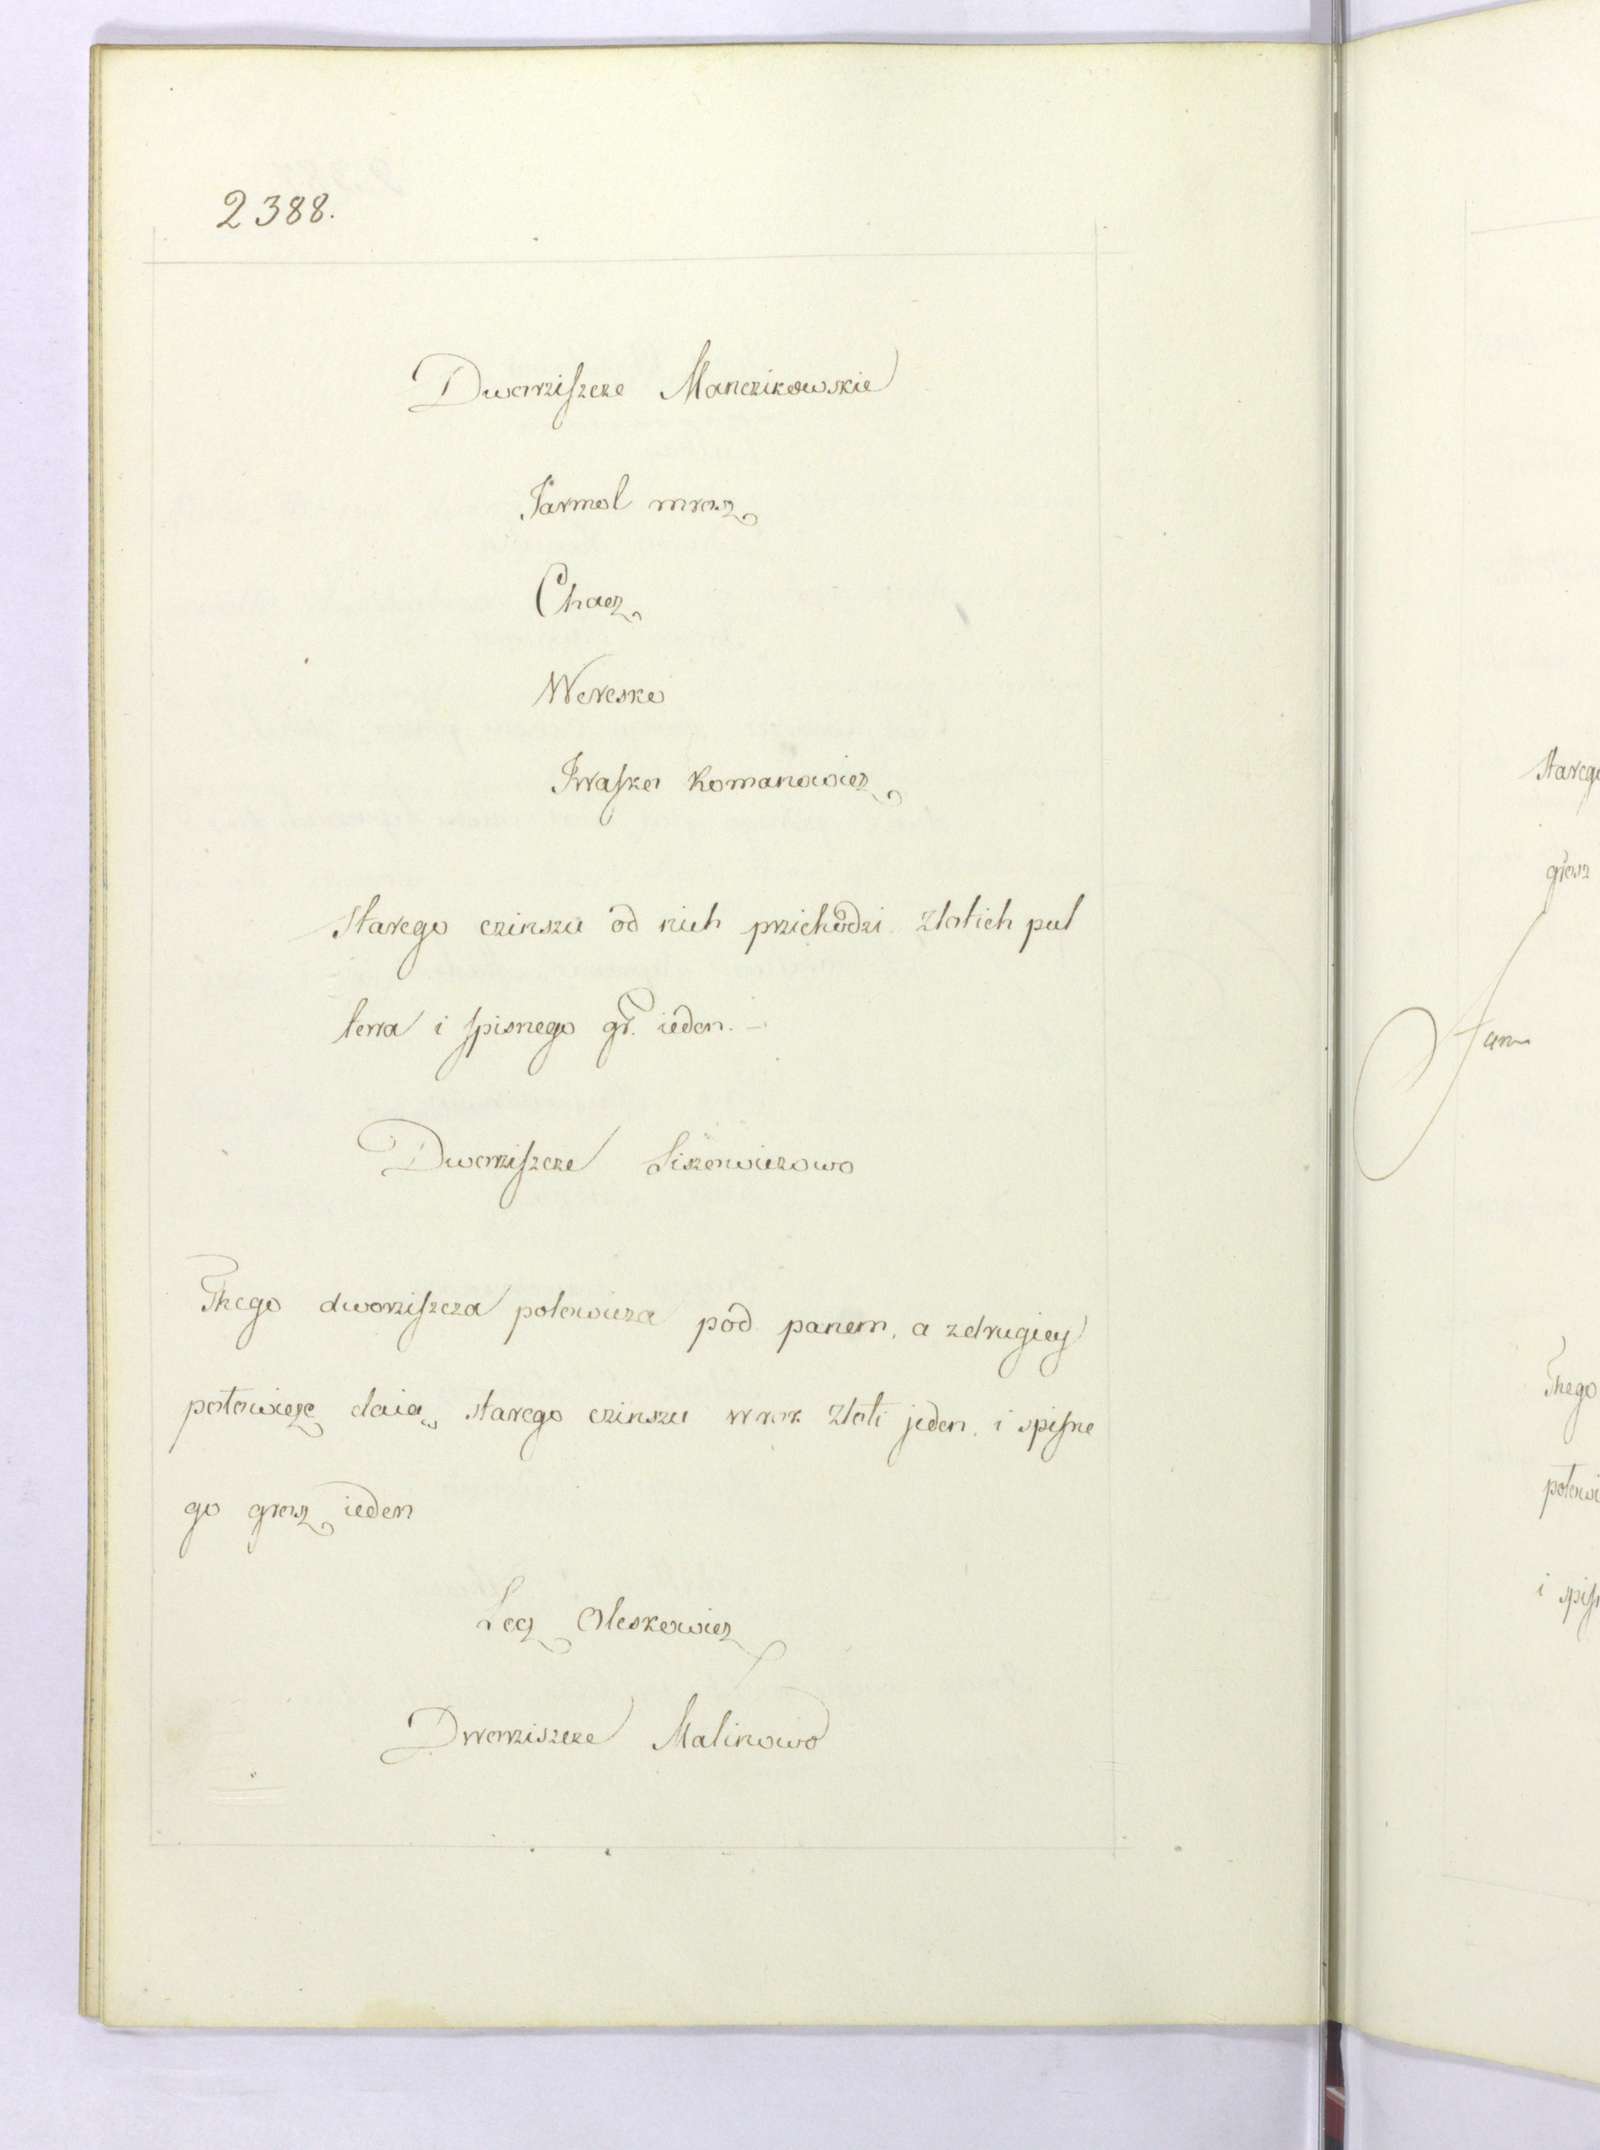 2388.
Dworziszcze Manczikowskie
Jarmol mrosz
Chacz
Weresko
Iwasko Romanowicz
starego czinszu od nich przichodzi zlotich pul
terra i spisnego gr. ieden.
Dworziszcze
Thego dworziszcza polowicza pod panem, a zdrugiey
połowicze daią starego czinszu w rok złoti jeden, i spisne
go grosz ieden
Lecz Oleskowicz
Dworziszcze Malinowo
starego
grosz
Thego
połowi